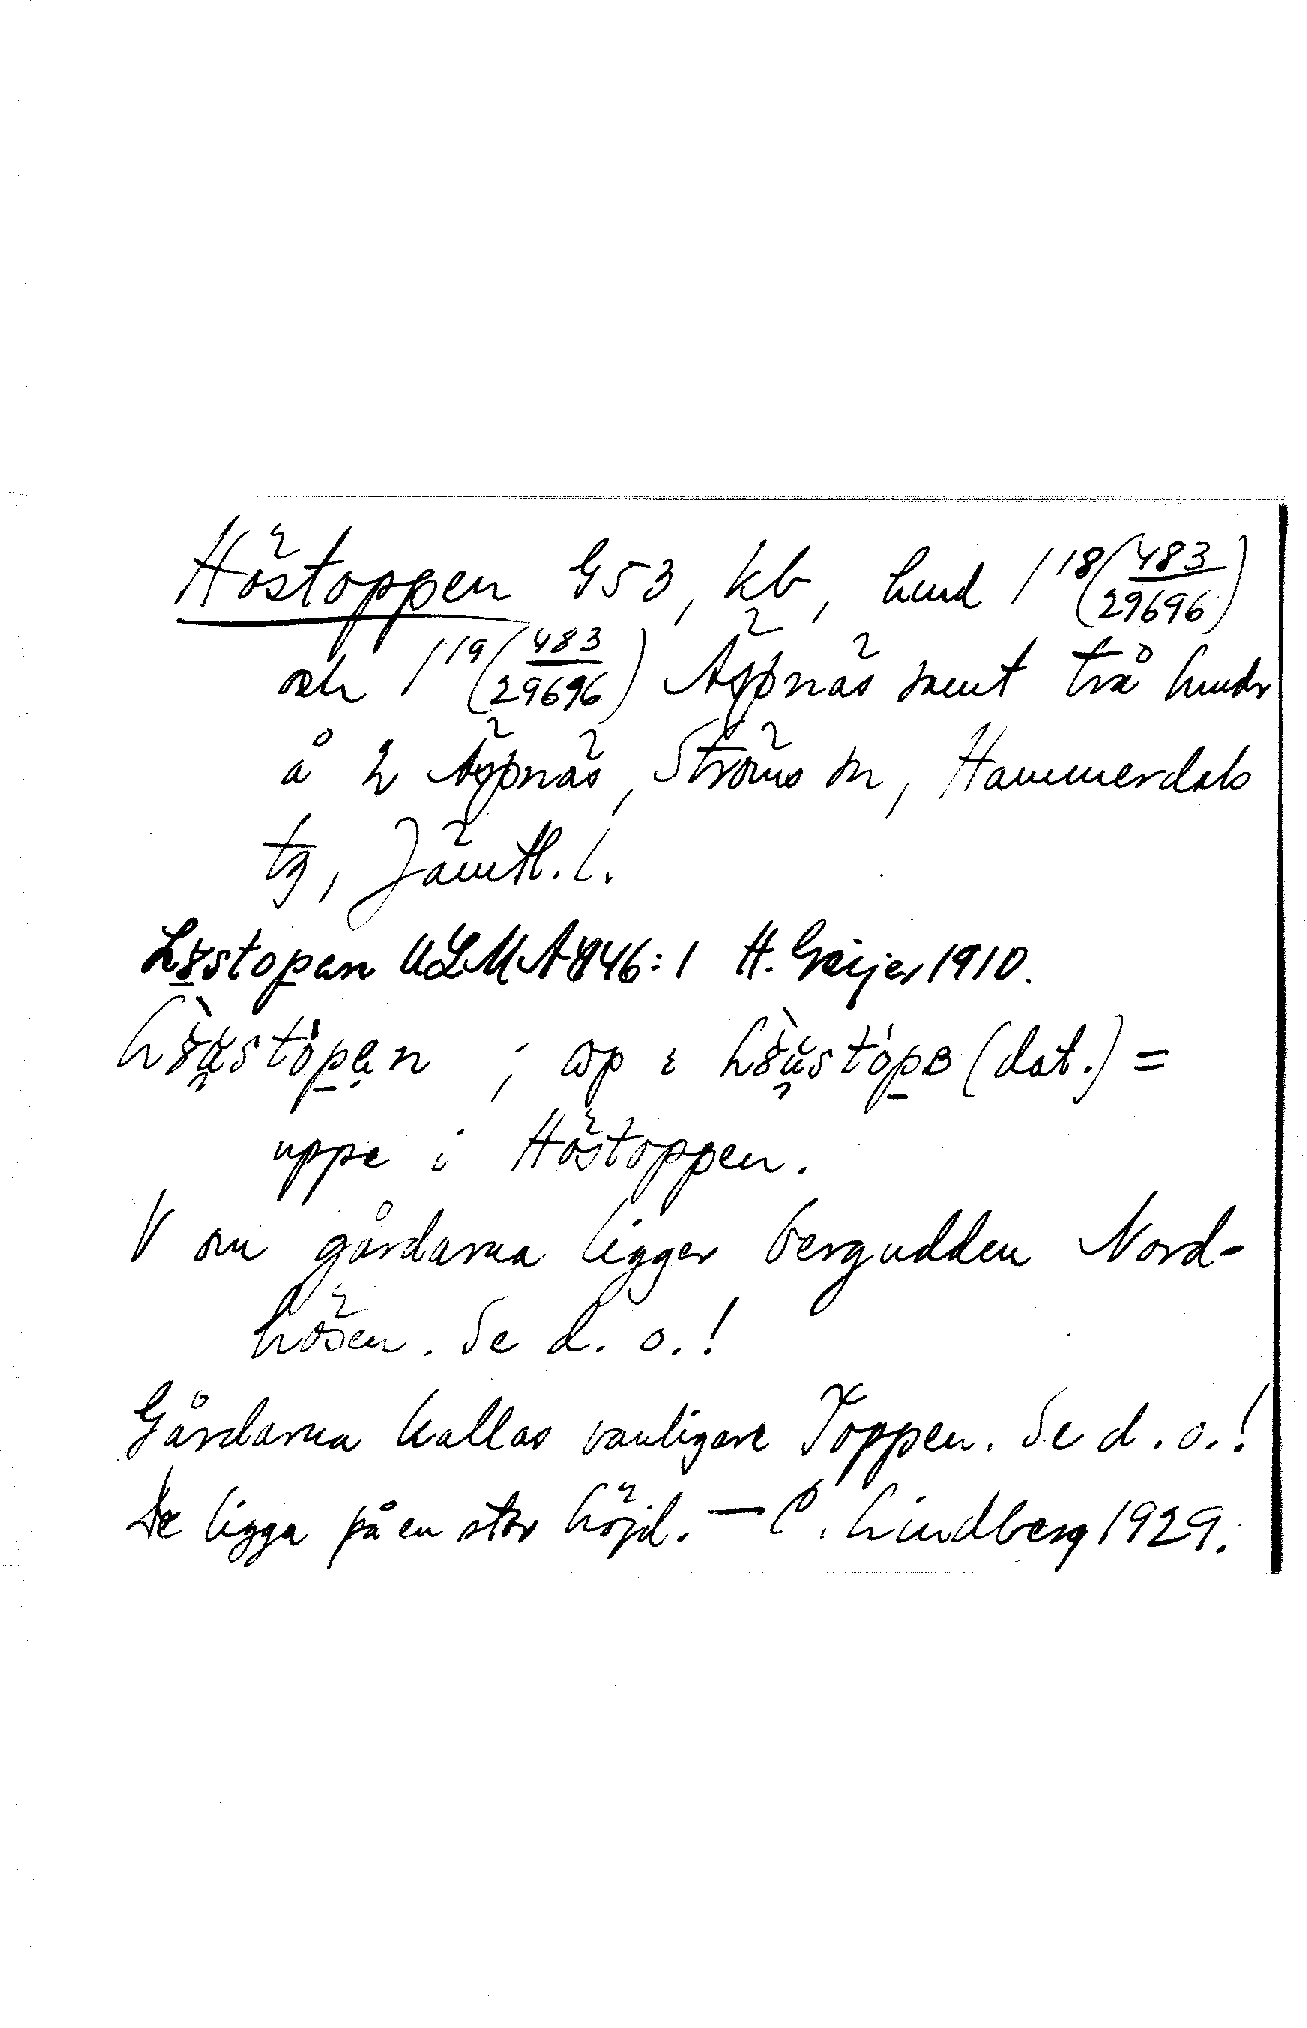 Höstoppen G53, kb, hmd 1^18 (483/29696)
och 1^19 (483/29696) Äspnäs samt två hmdr
å 2 Äspnäs, Ströms sn, Hammerdals
tg, Jämtl. l.
ULMA 846:1 H. Geijer 1910.
(dat.) =
uppe i Höstoppen.
V om gårdarna ligger bergudden Nord-
hösen. Se d. o.!
Gårdarna kallas vanligare Toppen. Se d. o.!
De ligga på en stor höjd. — C. Lindberg 1929.